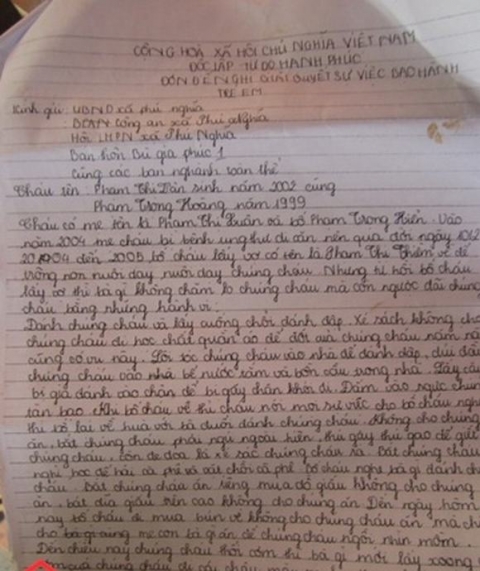 CỘNG HOÀ XÃ HỘI CHỦ NGHĨA VIỆT NAM
ĐỘC LẬP TỰ DO HẠNH PHÚC
ĐƠN ĐỀ NGHỊ GIẢI QUYẾT SỰ VIỆC BẠO HÀNH
TRẺ EM
Kính gửi: UBND xã phú nghĩa
: BCAN Công an xã Phú Nghĩa
Hội LHPN xã Phú Nghĩa
Ban thôn Bù gia phúc 1
Cùng các ban nghành toàn thể
Cháu tên: Phạm Thị Dân sinh năm 2002 cùng
Phạm Trọng Hoàng năm 1999
Cháu có mẹ tên là Phạm Thị Xuân và bố Phạm Trọng Hiển. Vào
năm 2004 mẹ cháu bị bệnh ung thư di căn nên qua đời ngày
đến 2005, bố cháu lấy vợ có tên là Phạm Thị Thiêm về để
trông non nuôi dạy nuôi dạy chúng cháu. Nhưng từ hồi bố cháu
lấy vợ thì bà gì không chăm lo chúng cháu mà còn ngược đãi chúng
cháu bằng những hành vi:
Đánh chúng cháu và lấy cuống chổi đánh đập. Xé sách không cho
chúng cháu đi học chất quần áo để đốt của chúng cháu năm nào
cũng có vụ này. Lôi tóc chúng cháu vào nhà để đánh đập, dúi đầu
chúng cháu vào nhà bể nước tắm và bồn cầu trong nhà. Lấy cây
bị già đánh vào chân để bị gẫy chân khỏi đi. Đấm vào ngực chúng
tàn bạo. Khi bố cháu về thì cháu nói mọi sự việc cho bố cháu nghe
thì bố lại về hùa với bà dưới đánh chúng cháu. Không cho chúng
ăn, bắt chúng cháu phải ngủ ngoài hiên, thủ gậy thủ dao để giết
chúng cháu, còn đe doạ là xẻ xác chúng cháu ra. Bắt chúng cháu
nghỉ học để hái cà phê và cắt chồi cà phê. bố cháu nghe bà gì đánh ch
cháu. Bắt chúng cháu ăn riêng mua đồ giấu không cho chúng
ăn, bát đĩa giấu trên cao không cho chúng ăn. Đến ngày hôm
nay bố cháu đi mua bún về không cho chúng cháu ăn mà ch
cho bà gì cùng mẹ con bà gì ăn để chúng cháu ngồi nhìn mồm.
Đến chiều nay chúng cháu thổi cơm thì bà gì mới lấy xoong